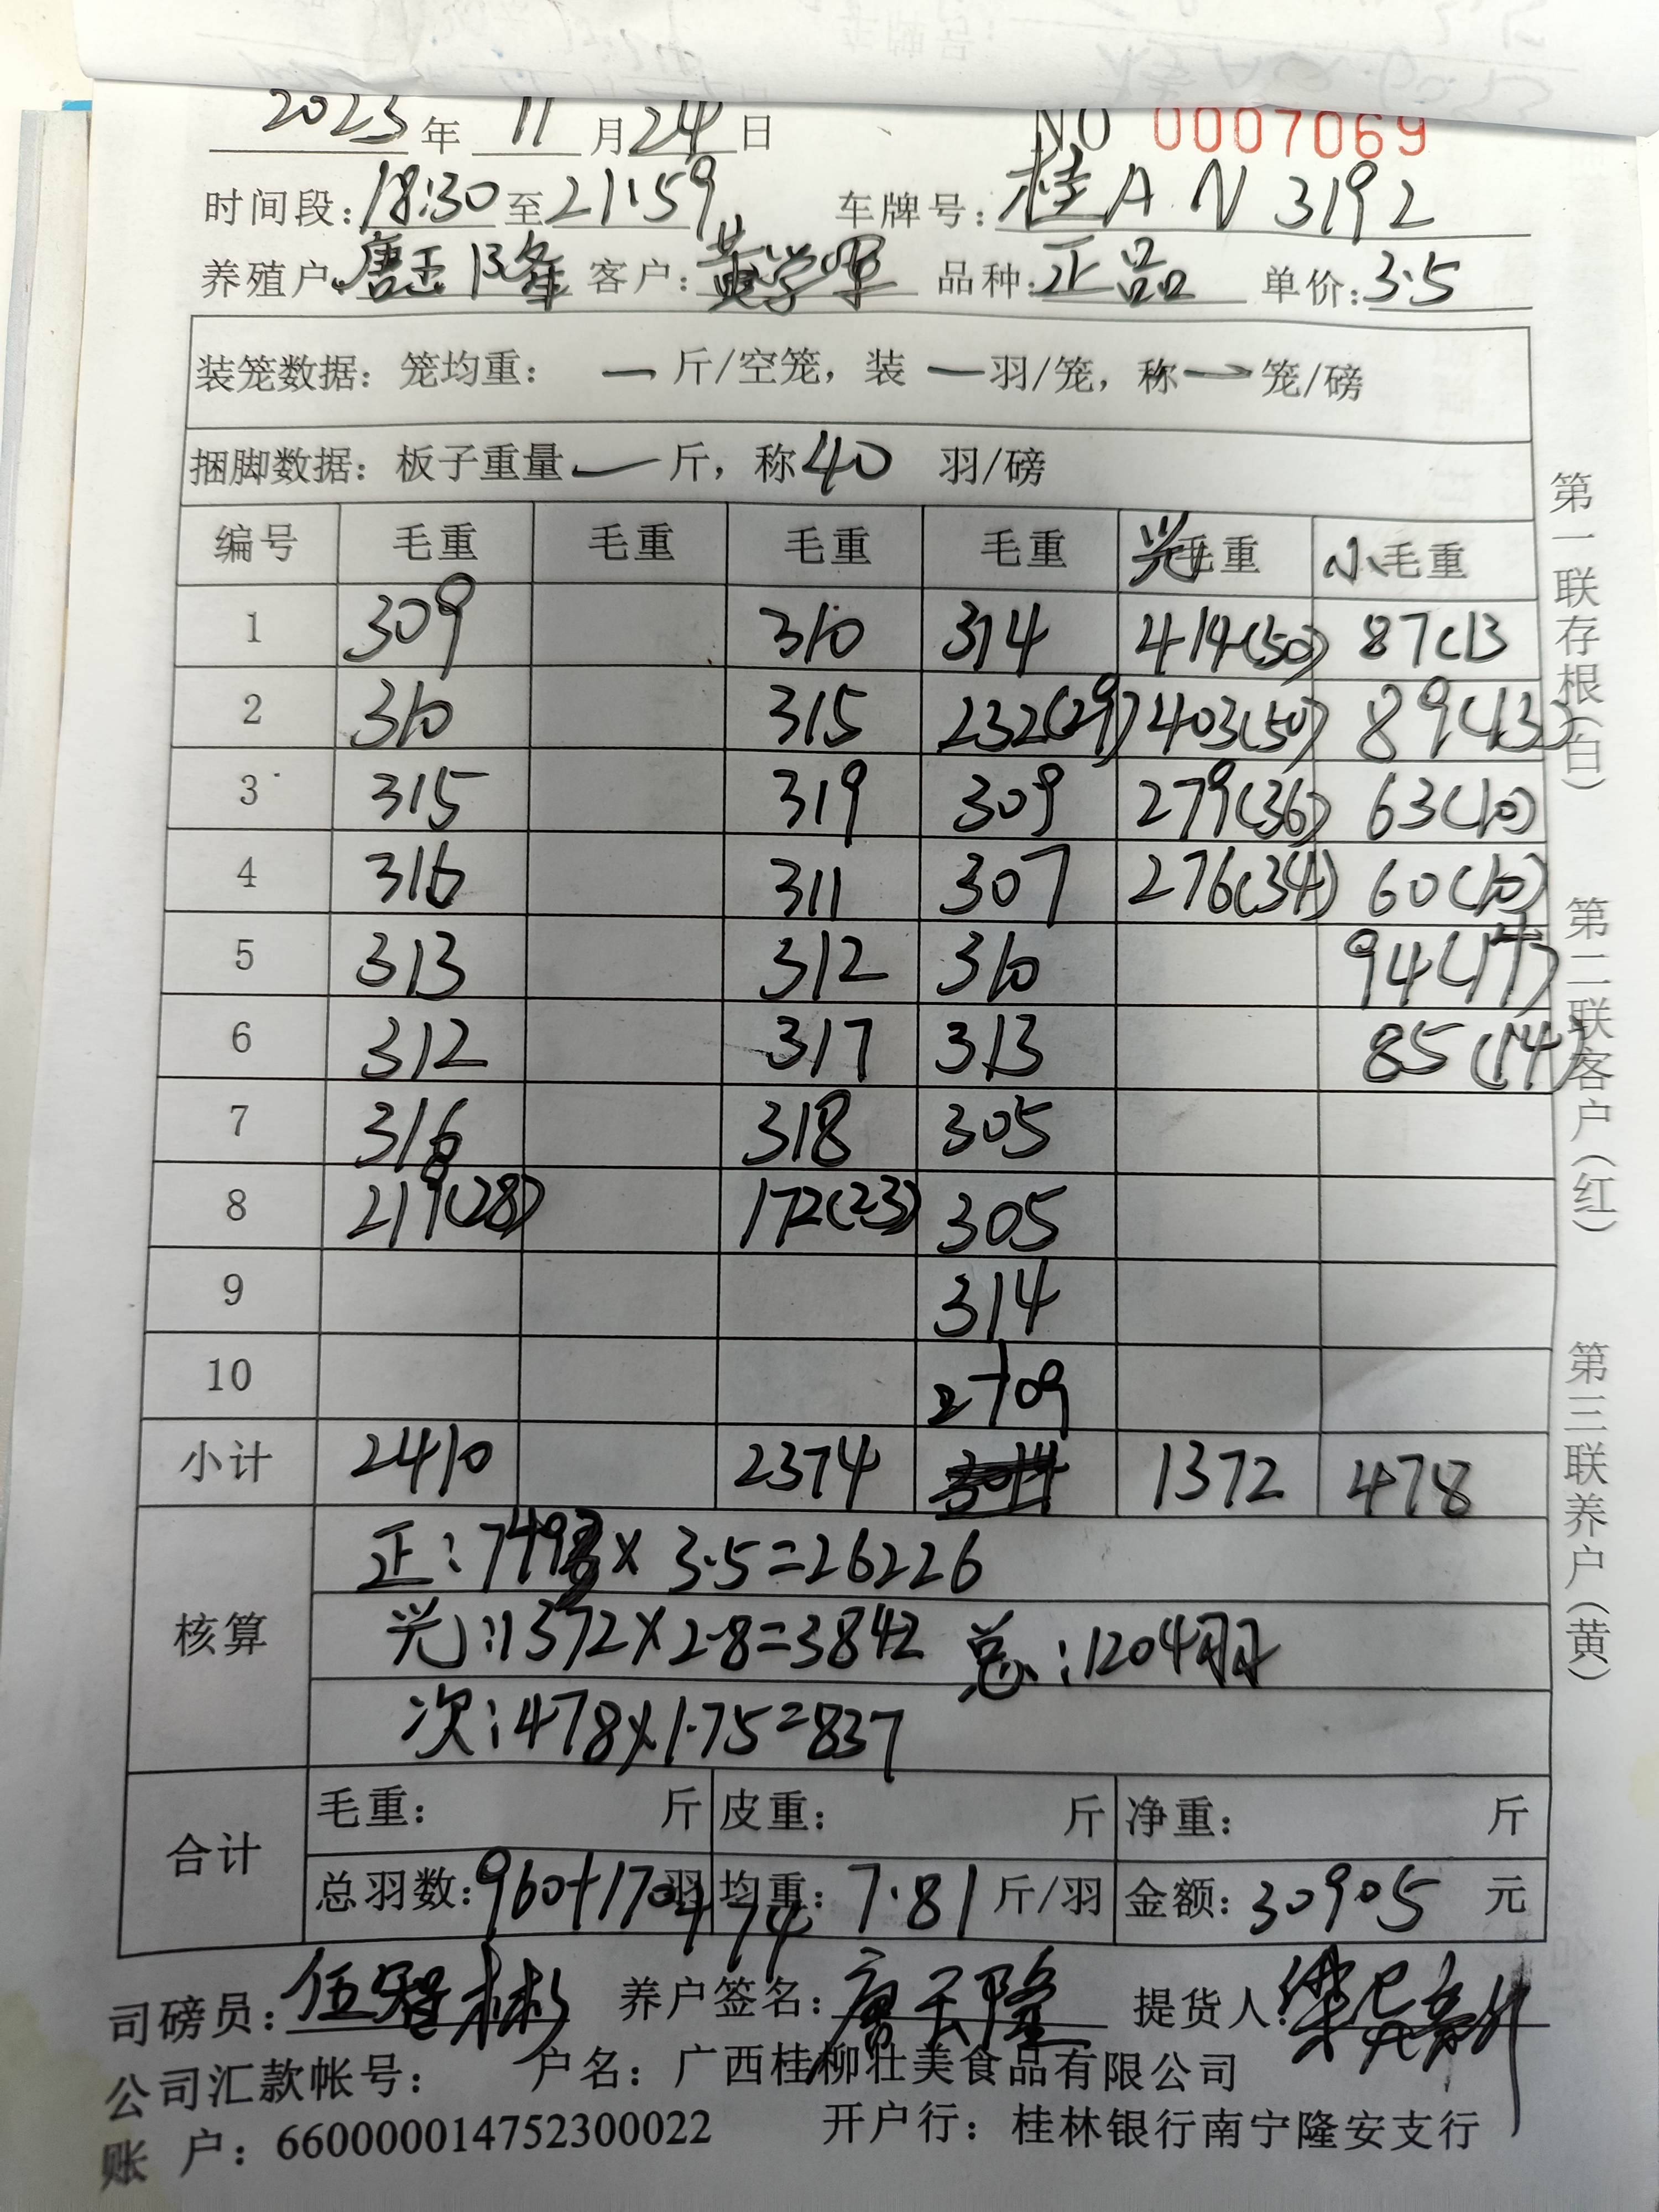 2023年 11月24日 NO 0007069
时间段:18:30至21:59 车牌号:桂A N 3192
养殖户:唐玉隆 客户:黄学军 品种:正品 单价:3.5
装笼数据: 笼均重: 一 斤/空笼, 装 一 羽/笼, 称 一 笼/磅
捆脚数据: 板子重量 一 斤, 称 40 羽/磅
编号 毛重 毛重 毛重 毛重 光毛重 小毛重
1 309 310 314 414(50) 87(13
2 310 315 232(29) 403(50) 89(13)
3 315 319 309 279(36) 63(10)
4 316 311 307 276(34) 60(10)
5 313 312 310 94(14)
6 312 317 313 85(14)
7 316 318 305
8 219(28) 172(23) 305
9 314
10 2709
小计 2410 2374 1372 478
核算
正:7493×3.5=26226
光:1372×2.8=3842 总:1204羽
次:478×1.75=837
合计
毛重: 斤 皮重: 斤 净重: 斤
总羽数:960+170+74羽 均重:7.81斤/羽 金额:30905元
司磅员: 养户签名: 提货人:
公司汇款帐号: 户名: 广西桂柳壮美食品有限公司
账 户: 660000014752300022 开户行: 桂林银行南宁隆安支行
第一联存根(白) 第二联客户(红) 第三联养户(黄)